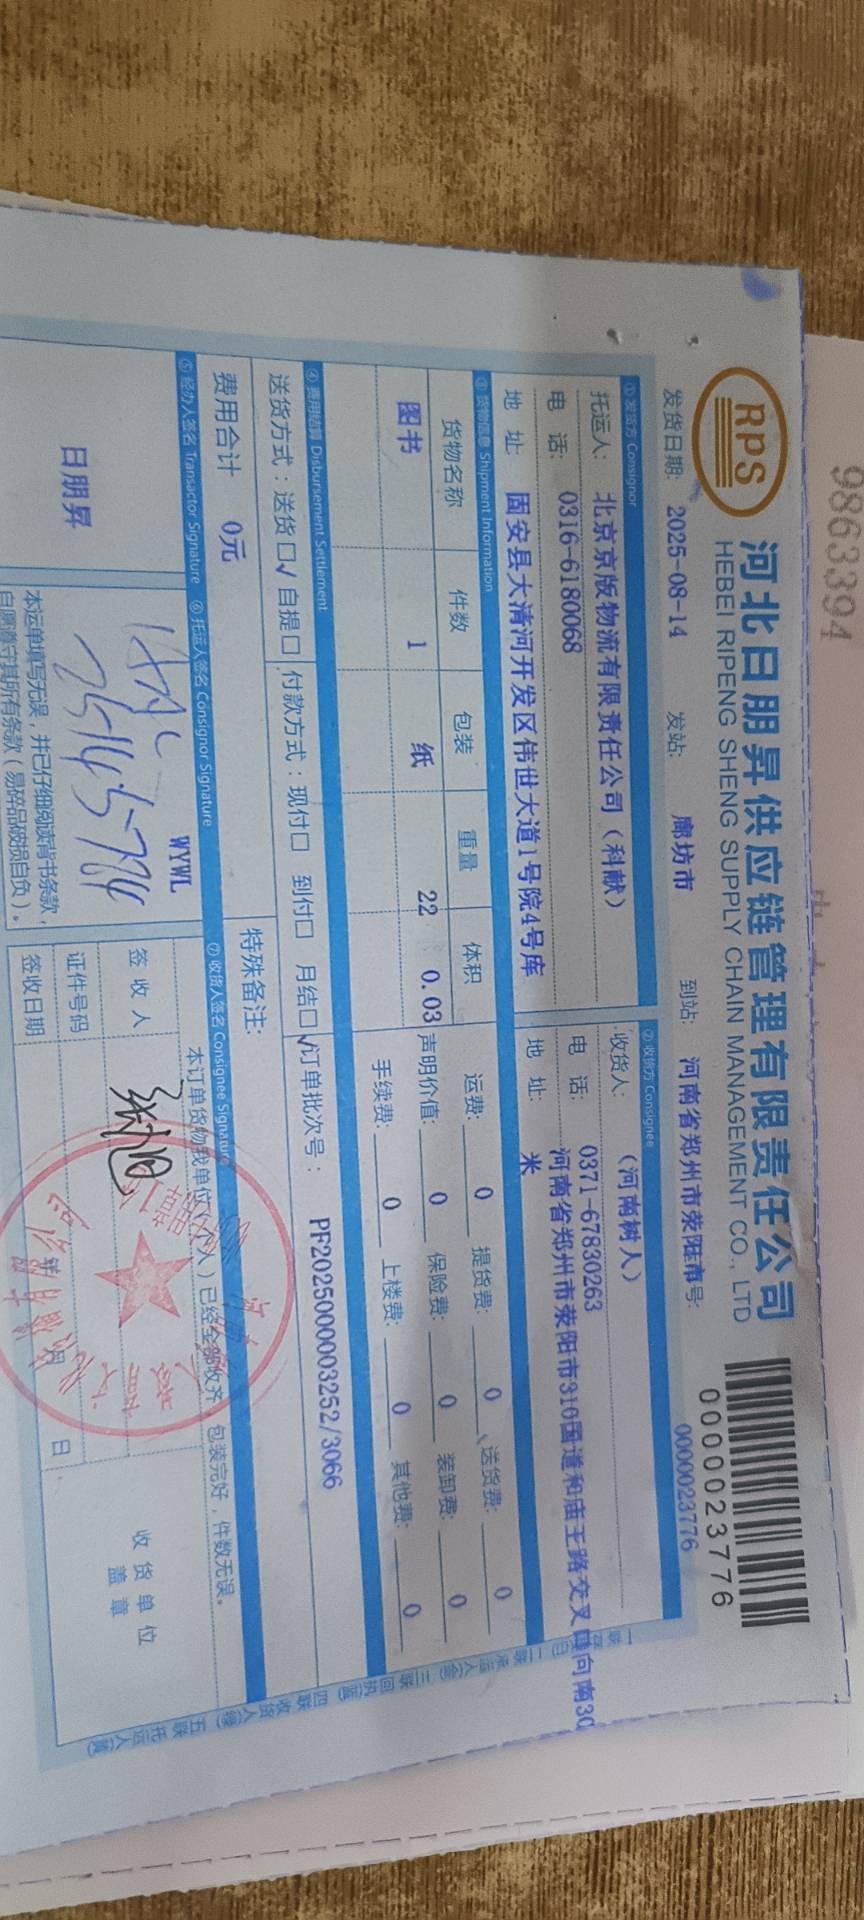 9863394
RPS
河北日朋昇供应链管理有限责任公司
HEBEI RIPENG SHENG SUPPLY CHAIN MANAGEMENT CO., LTD
0000023776
发货日期: 2025-08-14 发站: 廊坊市 到站: 河南省郑州市荥阳市 号: 0000023776
①发货方 Consignor ②收货方 Consignee
托运人: 北京京版物流有限责任公司（科献） 收货人: （河南树人）
电 话: 0316-6180068 电 话: 0371-67830263
地 址: 固安县大清河开发区伟世大道1号院4号库 地 址: 河南省郑州市荥阳市310国道和庙王路交叉口向南30
米
③货物信息 Shipment Information
货物名称 件数 包装 重量 体积 运费: 0 提货费: 0 送货费: 0
图书 1 纸 22 0.03 声明价值: 0 保险费: 0 装卸费: 0
手续费: 0 上楼费: 0 其他费: 0
④费用结算 Disbursement Settlement
送货方式：送货□√ 自提□ 付款方式：现付□ 到付□ 月结□√ 订单批次号： PF2025000003252/3066
费用合计 0元 特殊备注:
⑤经办人签名 Transactor Signature ⑥托运人签名 Consignor Signature ⑦收货人签名 Consignee Signature
日朋昇
WYWL
本运单填写无误，并已仔细阅读背书条款，
自愿遵守其所有条款（易碎品破损自负）。
本订单货物我单位（个人）已经全部收齐，包装完好，件数无误。
签 收 人
证件号码
签收日期 年 月 日
收 货 单 位
盖 章
一联 二联承运人 三联回执 四联收货人 五联托运人